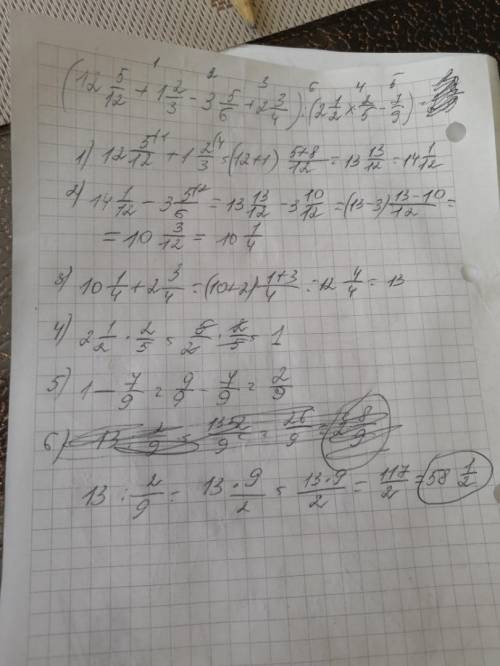 1 2 3 6 4 5
(12 5/12 + 1 2/3 - 3 5/6 + 2 3/4) : (2 1/2 × 2/5 - 7/9) =
1) 12 5/12 + 1 2/3 = (12+1) (5+8)/12 = 13 13/12 = 14 1/12
2) 14 1/12 - 3 5/6 = 13 13/12 - 3 10/12 = (13-3) (13-10)/12 =
= 10 3/12 = 10 1/4
3) 10 1/4 + 2 3/4 = (10+2) (1+3)/4 = 12 4/4 = 13
4) 2 1/2 · 2/5 = 5/2 · 2/5 = 1
5) 1 - 7/9 = 9/9 - 7/9 = 2/9
6)
13 : 2/9 = 13 · 9/2 = (13 · 9)/2 = 117/2 = 58 1/2